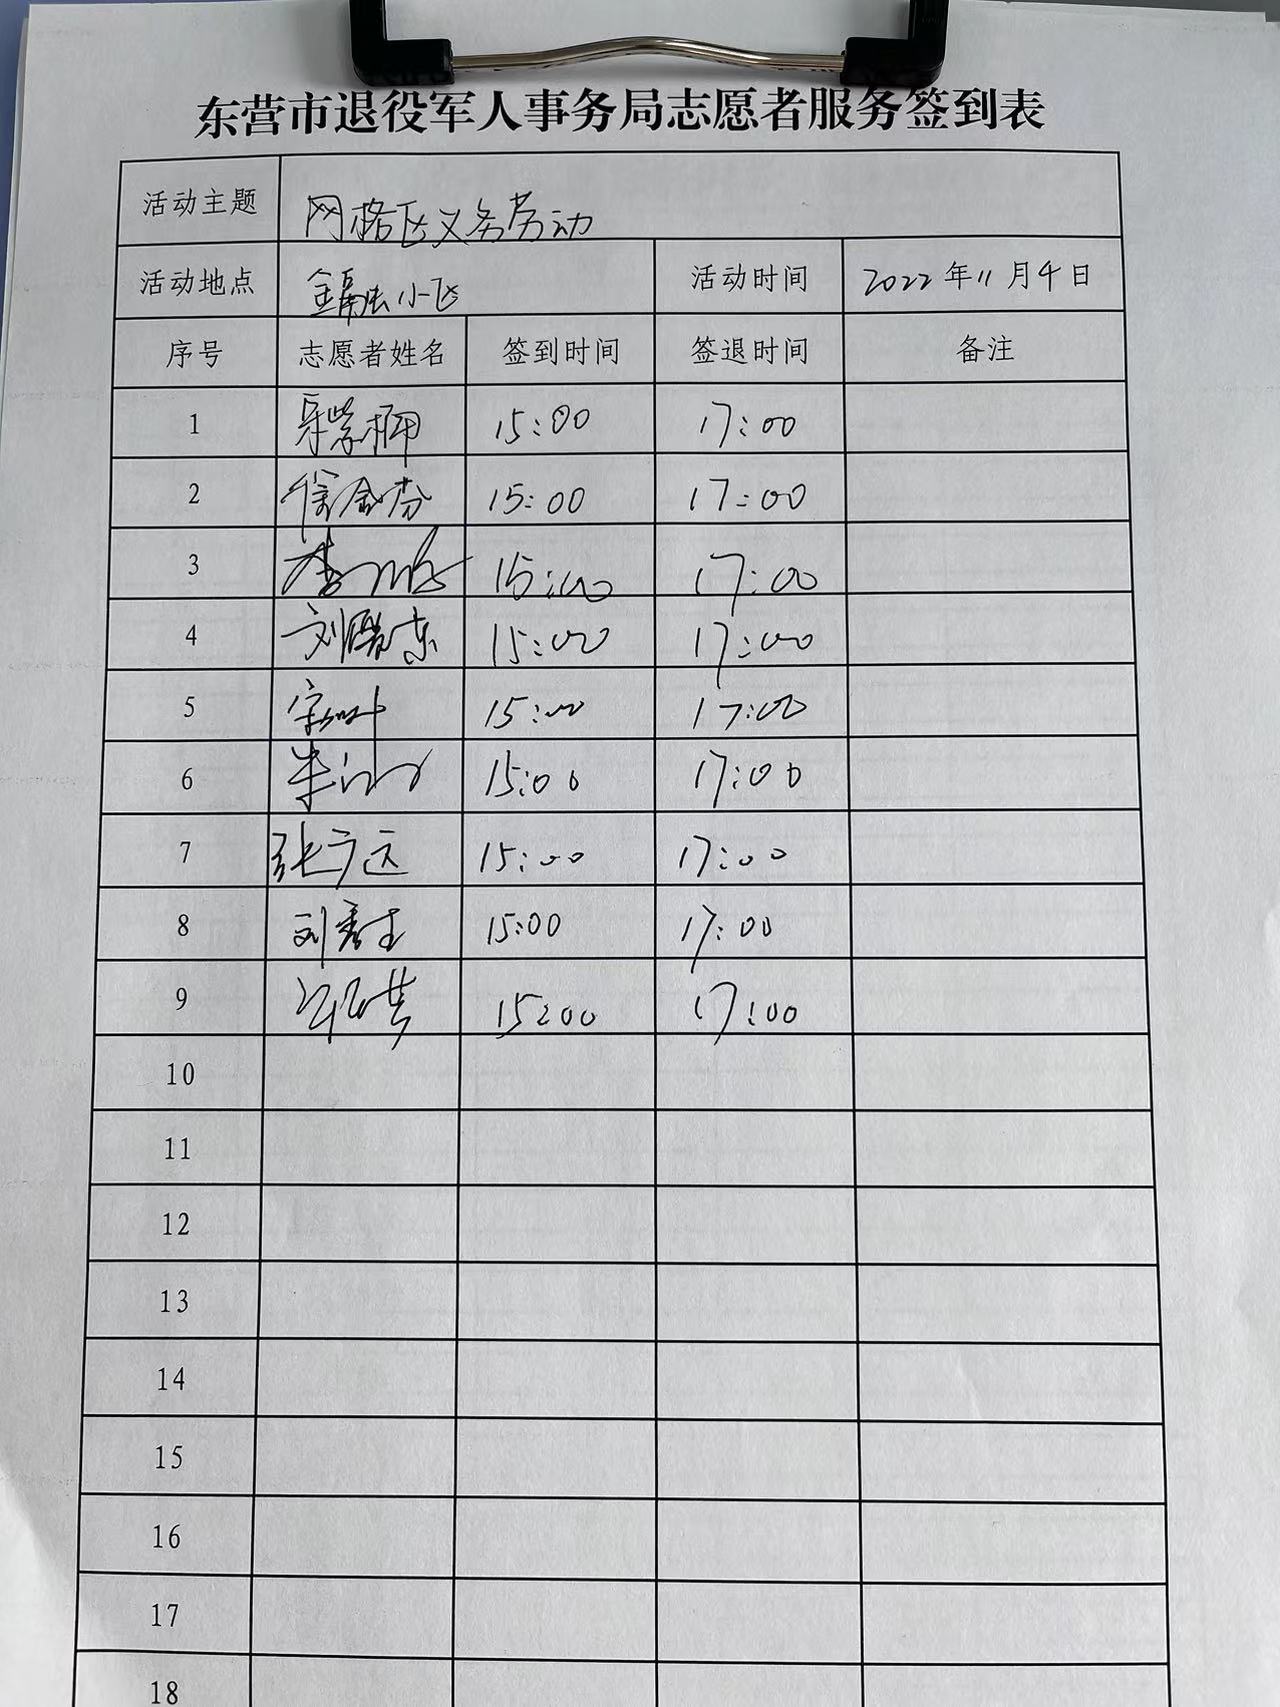 东营市退役军人事务局志愿者服务签到表
活动主题 网格区义务劳动
活动地点 小区 活动时间 2022年11月4日
序号 志愿者姓名 签到时间 签退时间 备注
1 15:00 17:00
2 徐金芬 15:00 17:00
3 李 15:00 17:00
4 刘 东 15:00 17:00
5 宋 15:00 17:00
6 15:00 17:00
7 张广远 15:00 17:00
8 刘 15:00 17:00
9 15:00 17:00
10
11
12
13
14
15
16
17
18